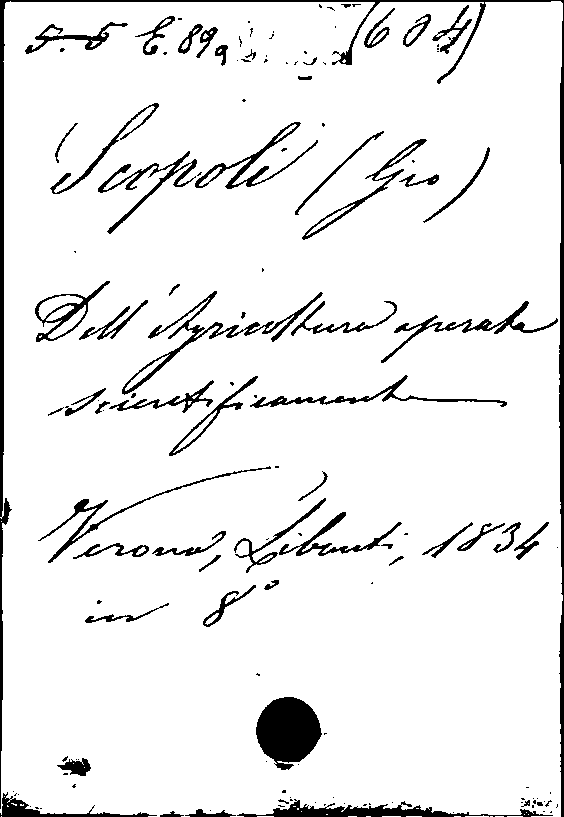 5. 5 E. 89a (604)
Scopoli (Gio)
Dell'Agricoltura operata
scientificamente
Verona, Libanti, 1834
in 8°